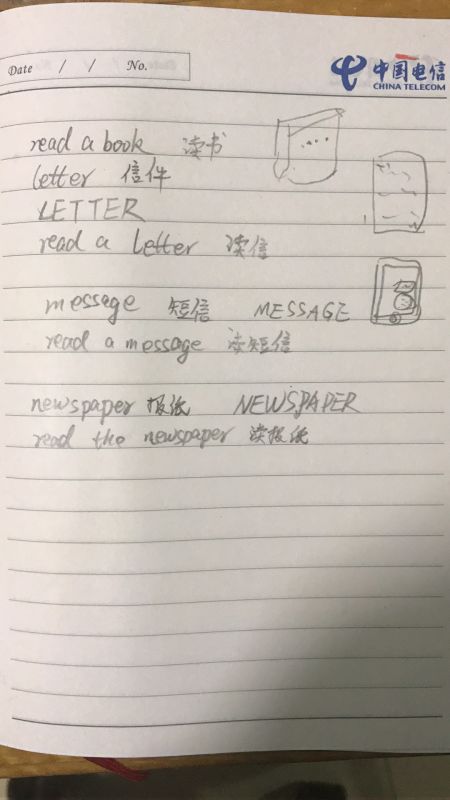 Date / / No.
中国电信
CHINA TELECOM
read a book 读书
letter 信件
LETTER
read a letter 读信
message 短信 MESSAGE
read a message 读短信
newspaper 报纸 NEWSPAPER
read the newspaper 读报纸